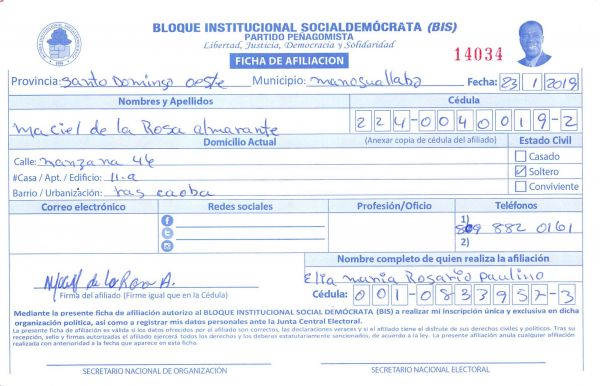 BLOQUE INSTITUCIONAL SOCIALDEMÓCRATA (BIS)
PARTIDO PEÑAGOMISTA
Libertad, Justicia, Democracia y Solidaridad
FICHA DE AFILIACION
14034
Provincia: Santo Domingo oeste Municipio: manoguallabo Fecha: 23 1 2019
Nombres y Apellidos Cédula
Maciel de la Rosa almarante 224-0040019-2
Domicilio Actual (Anexar copia de cédula del afiliado) Estado Civil
Calle: manzana 46 Casado
#Casa / Apt. / Edificio: 11-a Soltero
Barrio / Urbanización: las caoba Conviviente
Correo electrónico Redes sociales Profesión/Oficio Teléfonos
1) 809 882 0161
2)
Nombre completo de quien realiza la afiliación
Maciel de la Rosa A. Elia maria Rosario paulino
Firma del afiliado (Firme igual que en la Cédula) Cédula: 001-0833957-3
Mediante la presente ficha de afiliación autorizo al BLOQUE INSTITUCIONAL SOCIAL DEMÓCRATA (BIS) a realizar mi inscripción única y exclusiva en dicha
organización política, así como a registrar mis datos personales ante la Junta Central Electoral.
La presente ficha de afiliación es válida si los datos ofrecidos por el afiliado son correctos, las declaraciones veraces y si el afiliado tiene el disfrute de sus derechos civiles y políticos. Tras su
recepción, sello y firmas autorizadas el afiliado ejercerá todos los derechos y los deberes estatutariamente sancionados, de acuerdo a la ley. La presente afiliación anula cualquier afiliación
realizada con anterioridad a la fecha que aparece en esta ficha.
SECRETARIO NACIONAL DE ORGANIZACIÓN SECRETARIO NACIONAL ELECTORAL